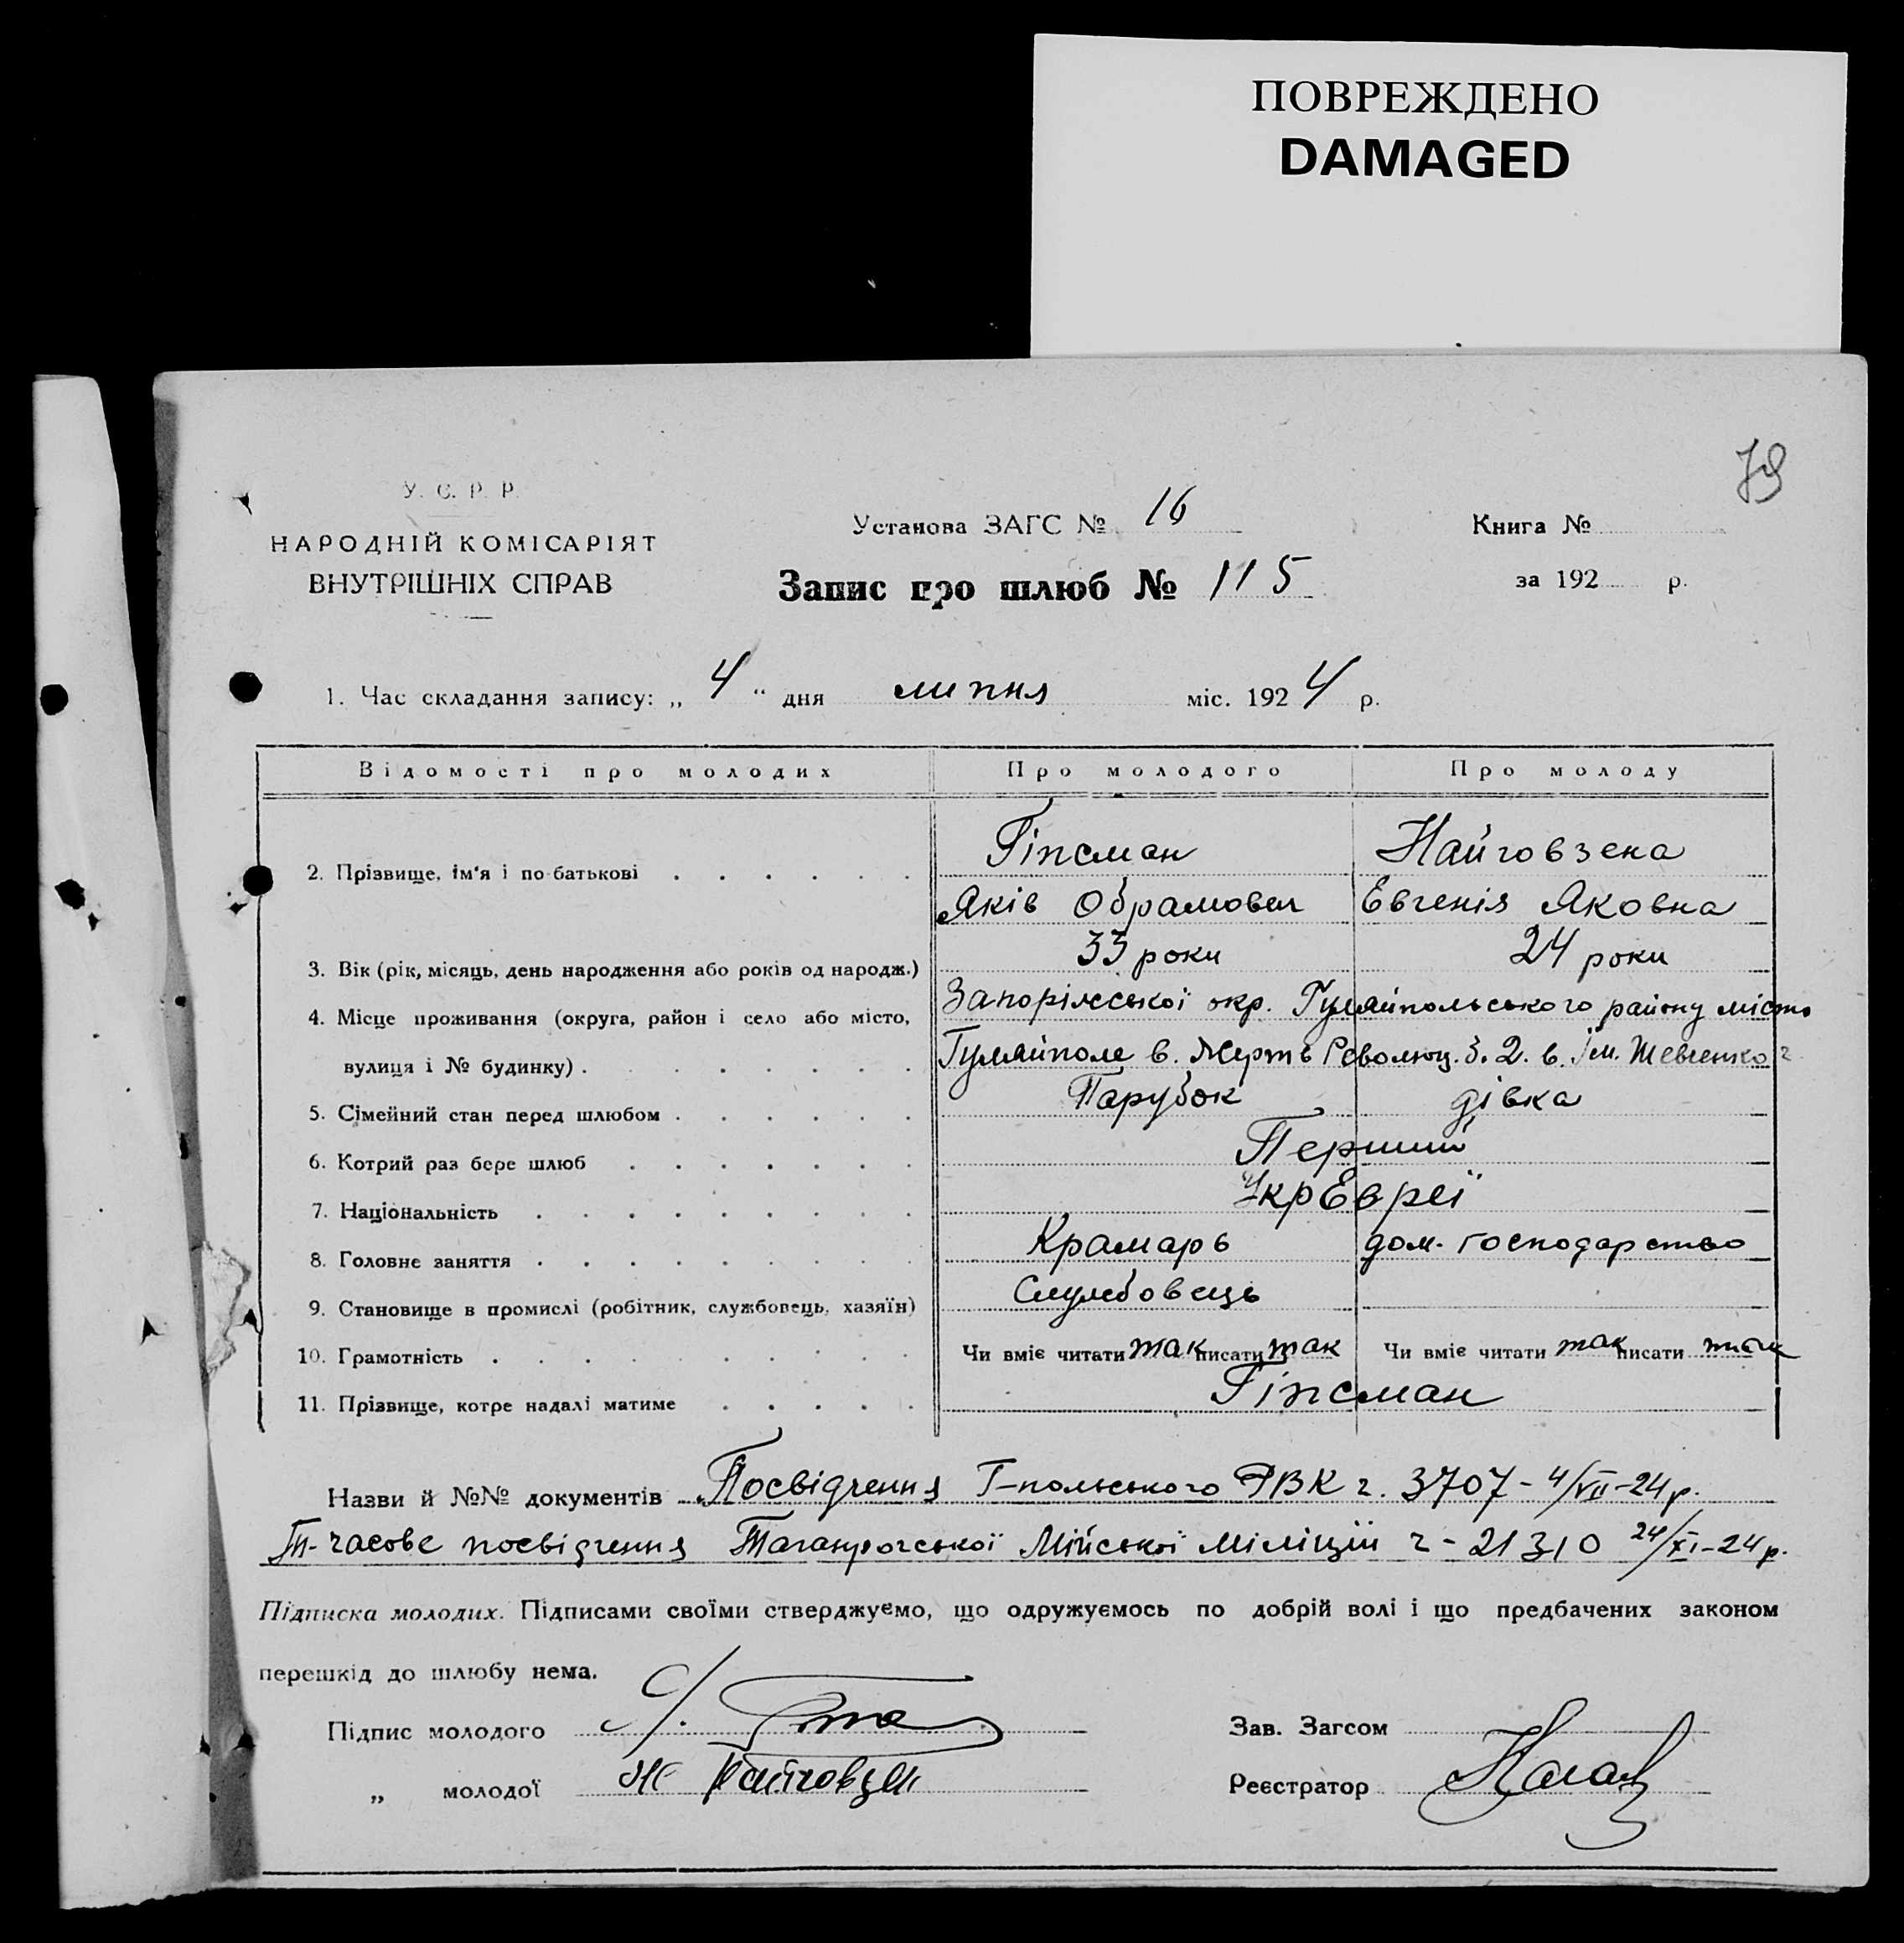 ПОВРЕЖДЕНО
DAMAGED
79
У. С. Р. Р.
НАРОДНІЙ КОМІСАРІЯТ
ВНУТРІШНІХ СПРАВ
Установа ЗАГС № 16
Книга №
Запис про шлюб № 115
за 192 р.
1. Час складання запису: „ 4 “ дня липня міс. 1924 р.
Відомості про молодих Про молодого Про молоду
Гіпсман Найговзена
2. Прізвище, ім'я і по-батькові
Яків Обрамович Евгенія Яковна
3. Вік (рік, місяць, день народження або років од народж.) 33 роки 24 роки
4. Місце проживання (округа, район і село або місто, Запоріжської окр. Гуляйпольського району місто
вулиця і № будинку) Гуляйполе в. Жертв Революц. б. 2. в. Ім. Шевченко
5. Сімейний стан перед шлюбом Парубок дівка
6. Котрий раз бере шлюб Перший
7. Національність УкрЕвреї
8. Головне заняття Крамарь дом. господарство
9. Становище в промислі (робітник, службовець, хазяїн) Службовець
10. Грамотність Чи вміє читати так писати так Чи вміє читати так писати так
11. Прізвище, котре надалі матиме Гіпсман
Назви й №№ документів Посвідчення Г-польського РВК ч. 3707 - 4/VII-24р.
Тп-часове посвідчення Таганрогської Мійської Міліціи ч - 21310 24/XI-24р.
Підписка молодих. Підписами своїми стверджуємо, що одружуємось по добрій волі і що предбачених законом
перешкід до шлюбу нема.
Підпис молодого
Зав. Загсом
„ молодої
Реєстратор